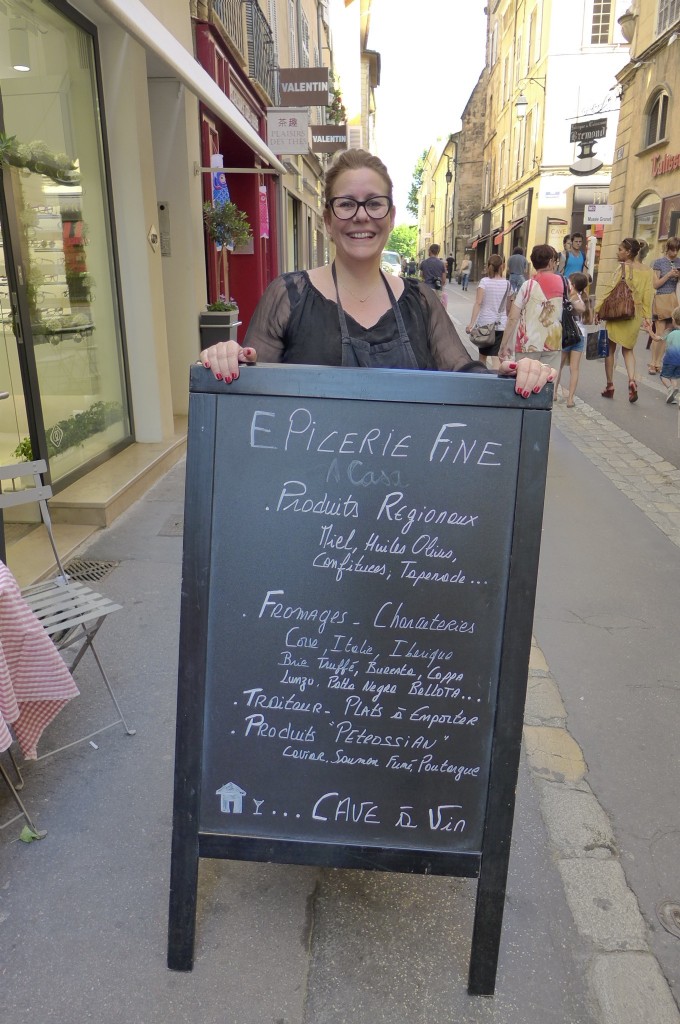 VALENTIN
茶趣
PLAISIRS
DES THÉS
VALENTIN
Bremond
EPICERIE FINE
A Casa
. Produits Régionaux
Miel, Huiles Olives,
Confitures, Tapenade...
. FROMAGES - Charcuteries
Corse, Italie, Iberique
Brie Truffé, Burrata, Coppa
Lonzo. Patta Negra Bellota...
. TRAITEUR - PLATS à EMPORTER
. PRODUITS "PETROSSIAN"
Caviar, Saumon Fumé, Poutargue
... CAVE à Vin